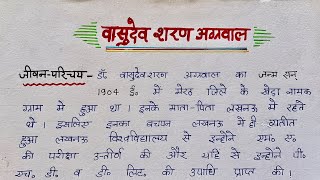 वासुदेव शरण अग्रवाल
जीवन-परिचय- डॉ० वासुदेव शरण अग्रवाल का जन्म सन्
1904 ई० में मेरठ जिले के खेड़ा नामक
ग्राम में हुआ था। इनके माता-पिता लखनऊ में रहते
थे। इसलिए इनका बचपन लखनऊ में ही व्यतीत
हुआ लखनऊ विश्वविद्यालय से इन्होंने एम० ए०
की परीक्षा उत्तीर्ण की और यहि से इन्होंने पी०
एच० डी० व डी० लिट० की उपाधि प्राप्त की।